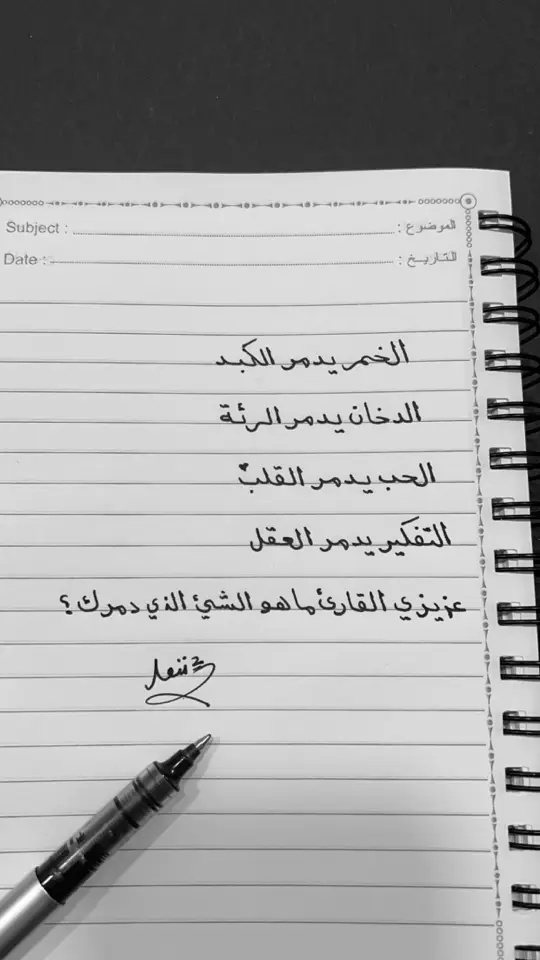 Subject : الموضوع :
Date : التاريخ :
الخمر يدمر الكبد
الدخان يدمر الرئة
الحب يدمر القلب
التفكير يدمر العقل
عزيزي القارئ ما هو الشيئ الذي دمرك ؟